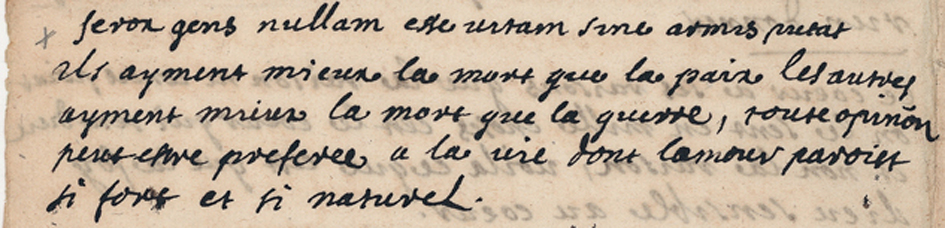 ferox gens nullam esse vitam sine armis putat
ils ayment mieux la mort que la paix les autres
ayment mieux la mort que la guerre, toute opinion
peut estre preferee a la vie dont lamour paroist
si fort et si naturel.